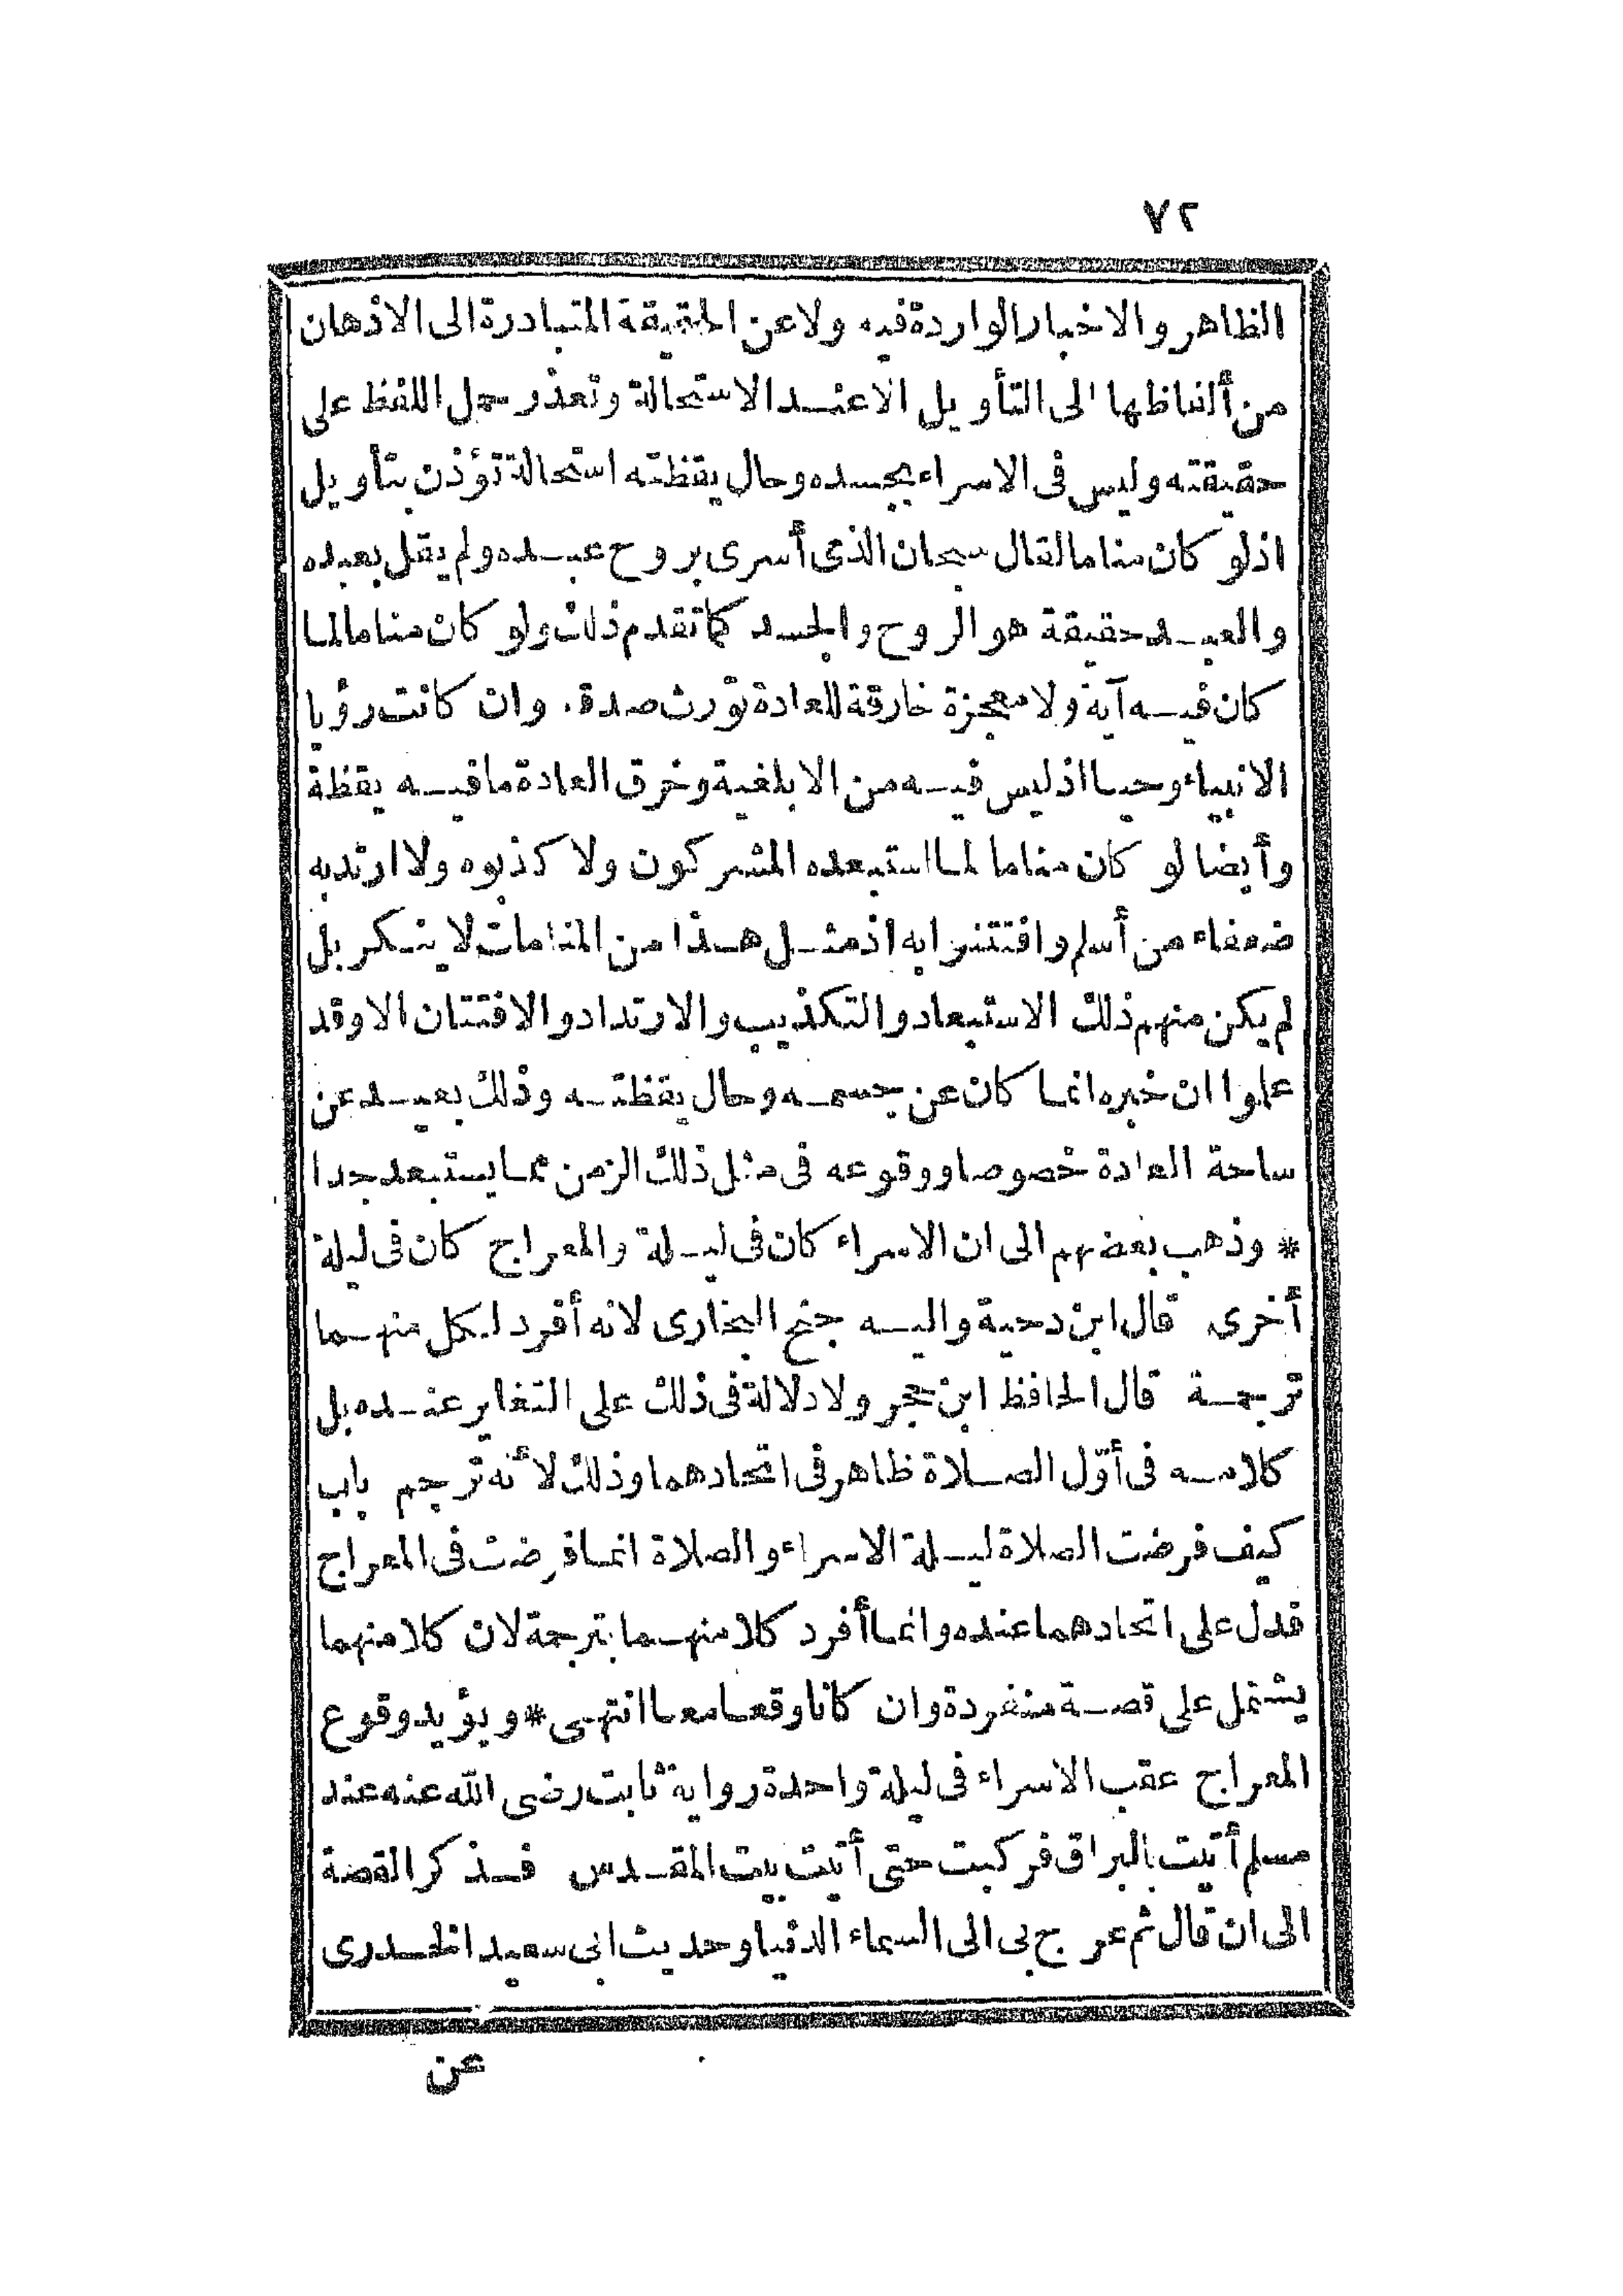 ٧٢
الظاهر والاخبار الواردة فيه ولا عن الحقيقة المتبادرة الى الاذهان
من ألفاظها الى التأويل الا عند الاستحالة وتعذر حمل اللفظ على
حقيقته وليس فى الاسراء بجسده وحال يقظته استحالة تؤذن بتأويل
اذ لو كان مناما لقال سبحان الذى أسرى بروح عبده ولم يقل بعبده
والعبد حقيقة هو الروح والجسد كما تقدم ذلك ولو كان مناما لما
كان فيه آية ولا معجزة خارقة للعادة تورث صدقه وان كانت رؤيا
الانبياء وحيا اذ ليس فيه من الابلغية وخرق العادة ما فيه يقظة
وأيضا لو كان مناما لما استبعده المشركون ولا كذبوه ولا ارتد به
ضعفاء من أسلم وافتتنوا به اذ مثل هذا من المنامات لا ينكر بل
لم يكن منهم ذلك الاستبعاد والتكذيب والارتداد والافتتان الا وقد
علموا ان خبره انما كان عن جسمه وحال يقظته وذلك بعيد عن
ساحة العادة خصوصا ووقوعه فى مثل ذلك الزمن مما يستبعد جدا
* وذهب بعضهم الى ان الاسراء كان فى ليلة والمعراج كان فى ليلة
أخرى قال ابن دحية واليه جنح البخارى لانه أفرد لكل منهما
ترجمة قال الحافظ ابن حجر ولا دلالة فى ذلك على التغاير عنده بل
كلامه فى أوّل الصلاة ظاهر فى اتحادهما وذلك لأنه ترجم باب
كيف فرضت الصلاة ليلة الاسراء والصلاة انما فرضت فى المعراج
فدل على اتحادهما عنده وانما أفرد كلا منهما بترجمة لان كلا منهما
يشتمل على قصة منفردة وان كانا وقعا معا انتهى * ويؤيد وقوع
المعراج عقب الاسراء فى ليلة واحدة رواية ثابت رضى الله عنه عند
مسلم أتيت بالبراق فركبت حتى أتيت بيت المقدس فذكر القصة
الى ان قال ثم عرج بى الى السماء الدنيا وحديث ابى سعيد الخدرى
عن